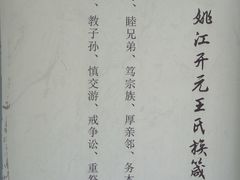 姚江开元王氏族箴
、睦兄弟、笃宗族、厚亲邻、务本
、教子孙、慎交游、戒争讼、重祭